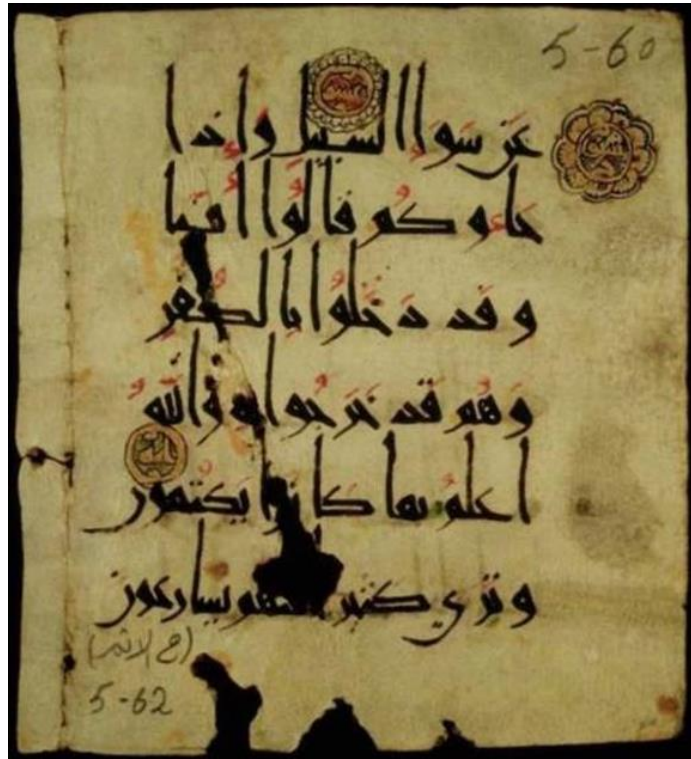 5-60
عَن سَوا السبيل واذا
جاوكم قالوا امنا
وقد دخلوا بالكفر
وهم قد خرجوا به والله
اعلم بما كانوا يكتمون
وترى كثيرا منهم يسارعون
(في الاثم)
5-62